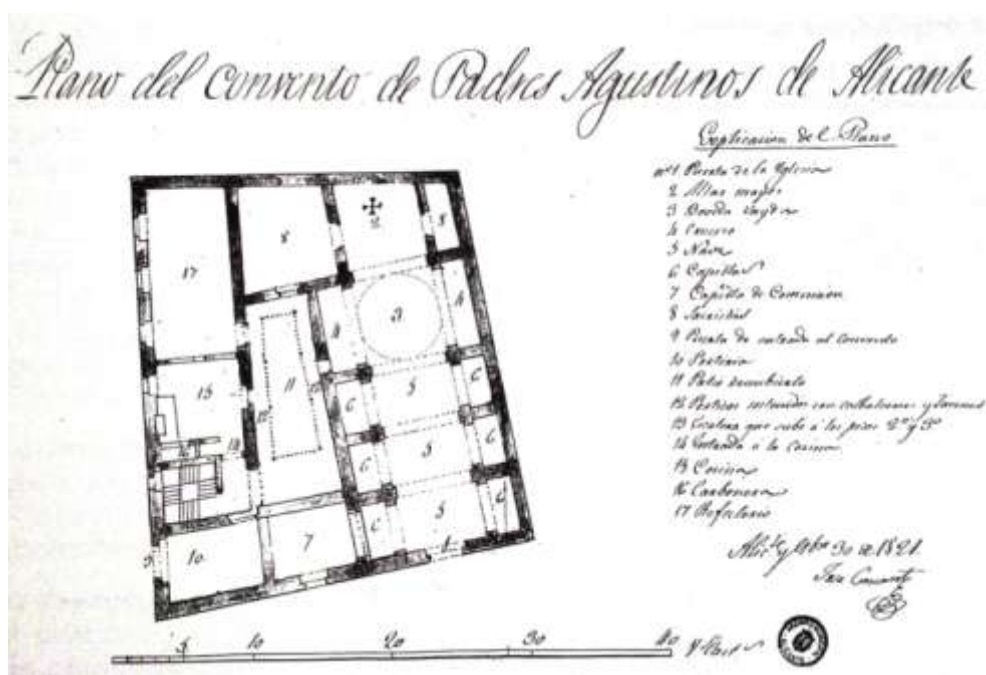 Plano del Convento de Padres Agustinos de Alicante
Explicacion del Plano
nº 1 Puerta de la Yglesia
2 Altar mayor
3
4 Crucero
5 Nave
6 Capillas
7 Capilla de Comunion
8 Sacristias
9 Puerta de entrada al convento
10 Porteria
11 Patio descubierto
12 Porticos con y
13 Escalera que sube a los pisos 2º y 3º
14 Entrada a la cocina
15 Cocina
16 Carbonera
17 Refectorio
30 de 1821
Jose
17 8 2 8
3 4 4
15 11 5 6
12 6
14 5 6
6
10 7 6 5 6
9 1
5 10 20 30 40